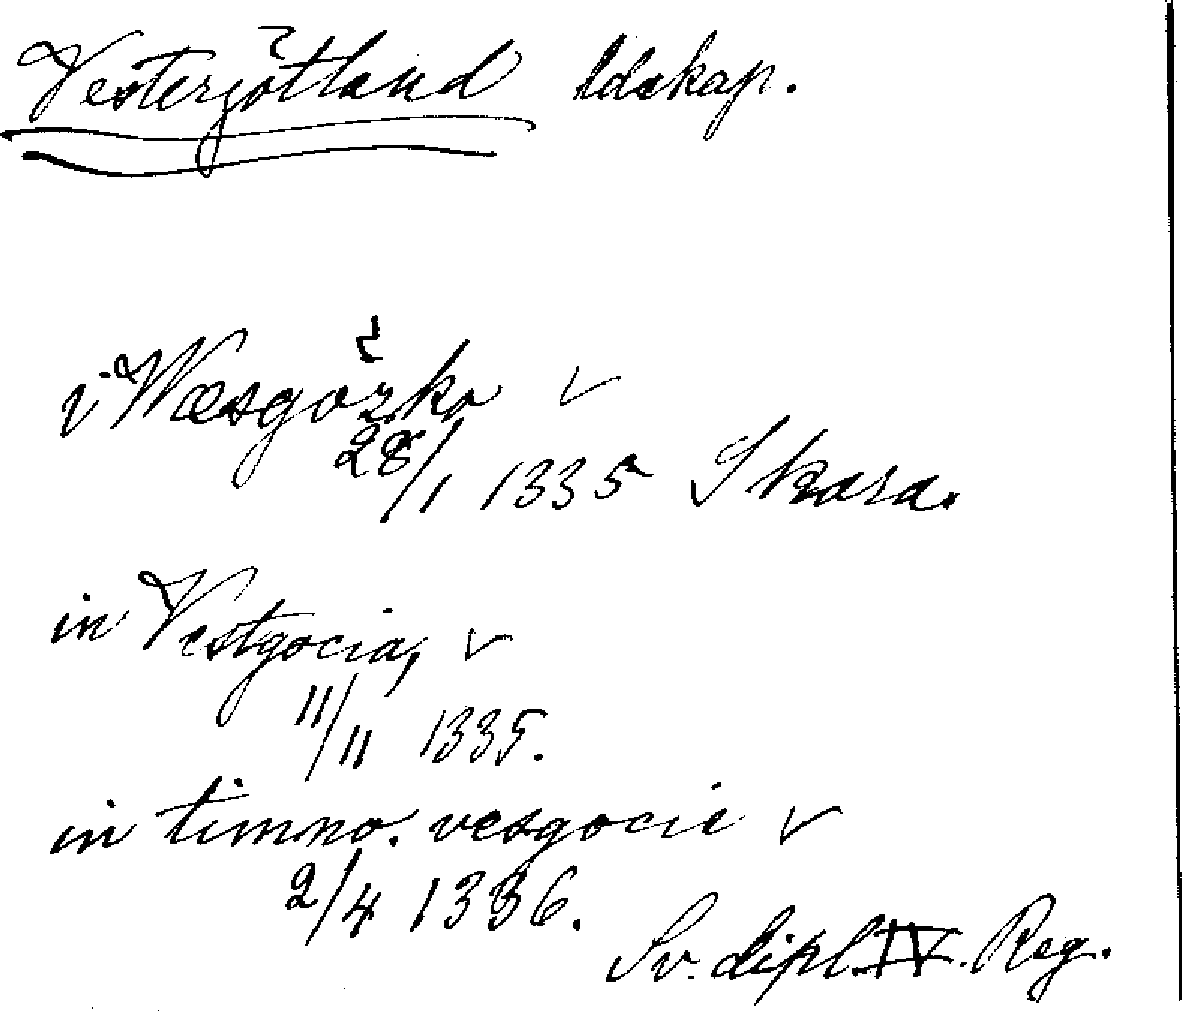 Vestergötland ldskap.
i Wæsgøzko ✓
28/1 1335 Skara.
in Vestgocia, ✓
11/11 1335.
in timno. vesgocie ✓
2/4 1336.
Sv. dipl. IV. Reg.